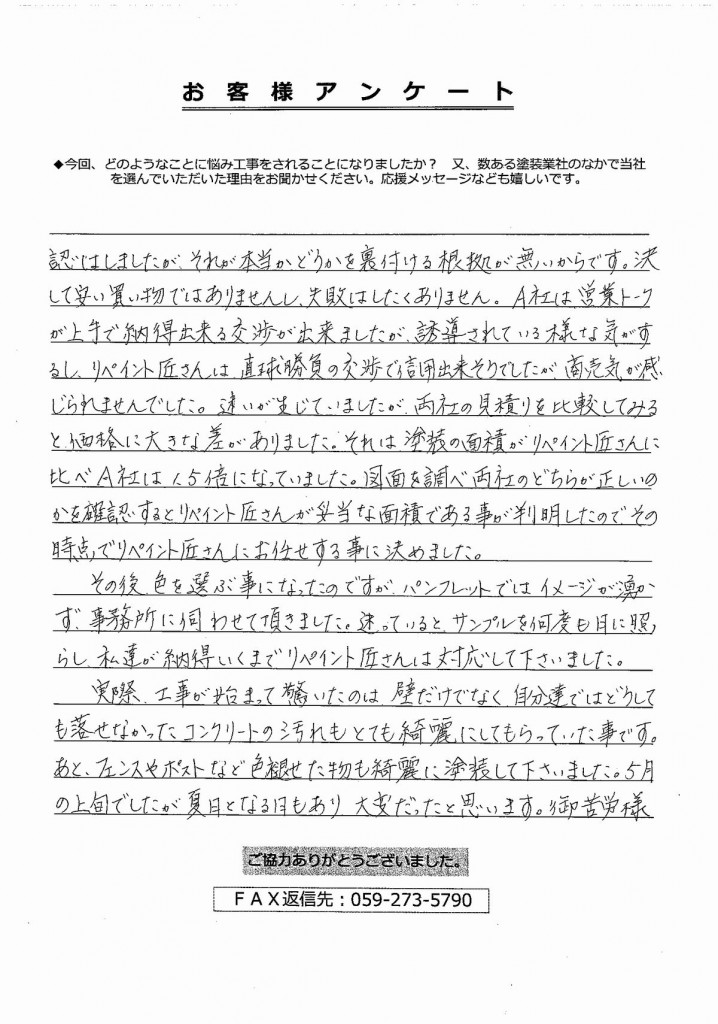 お客様アンケート
◆今回、どのようなことに悩み工事をされることになりましたか？　又、数ある塗装業社のなかで当社
を選んでいただいた理由をお聞かせください。応援メッセージなども嬉しいです。
認はしましたが、それが本当かどうかを裏付ける根拠が無いからです。決
して安い買い物ではありませんし、失敗はしたくありません。A社は営業トーク
が上手で納得出来る交渉が出来ましたが、誘導されている様な気がす
るし、リペイント匠さんは、直球勝負の交渉で信用出来そうでしたが、商売気が感
じられませんでした。迷いが生じていましたが、両社の見積りを比較してみる
と、価格に大きな差がありました。それは塗装の面積がリペイント匠さんに
比べA社は1.5倍になっていました。図面を調べ両社のどちらが正しいの
かを確認するとリペイント匠さんが妥当な面積である事が判明したのでその
時点でリペイント匠さんにお任せする事に決めました。
その後、色を選ぶ事になったのですが、パンフレットではイメージが湧か
ず、事務所に伺わせて頂きました。迷っていると、サンプルを何度も日に照
らし、私達が納得いくまでリペイント匠さんは対応して下さいました。
実際、工事が始まって驚いたのは、壁だけでなく、自分達ではどうして
も落せなかったコンクリートの汚れもとても綺麗にしてもらっていた事です。
あと、フェンスやポストなど色褪せた物も綺麗に塗装して下さいました。5月
の上旬でしたが夏日となる日もあり、大変だったと思います。御苦労様
ご協力ありがとうございました。
ＦＡＸ返信先：059-273-5790